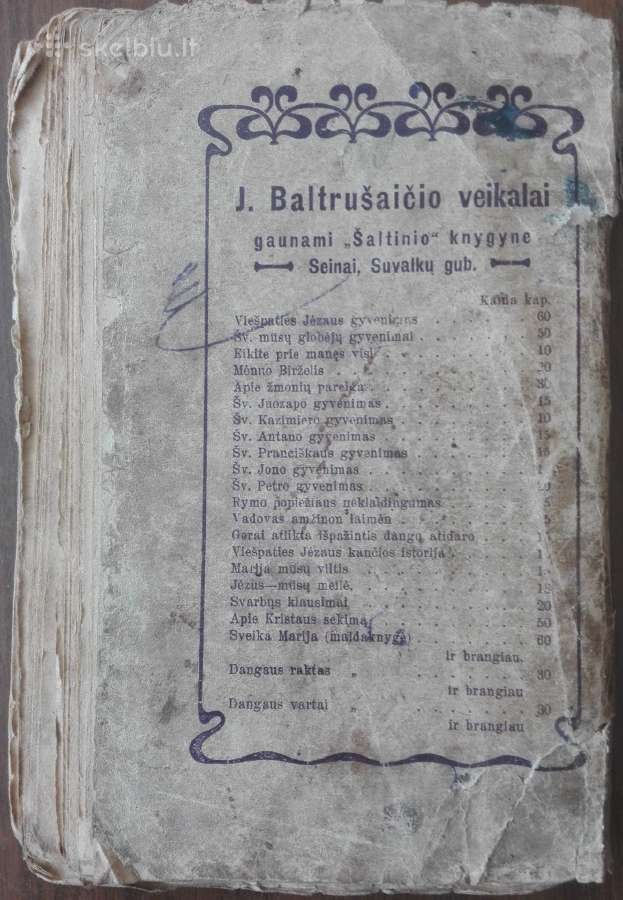 skelbiu.lt
J. Baltrušaičio veikalai
gaunami „Šaltinio“ knygyne
Seinai, Suvalkų gub.
Kaina kap.
Viešpaties Jėzaus gyvenimas . . . . 60
Šv. mūsų globėjų gyvenimai . . . . 50
Eikite prie manęs visi . . . . 10
Mėnuo Birželis . . . . 20
Apie žmonių pareigą . . . . 30
Šv. Juozapo gyvenimas . . . . 15
Šv. Kazimiero gyvenimas . . . . 10
Šv. Antano gyvenimas . . . . 15
Šv. Pranciškaus gyvenimas . . . . 15
Šv. Jono gyvenimas . . . .
Šv. Petro gyvenimas . . . .
Rymo popiežiaus neklaidingumas . . . .
Vadovas amžinon laimėn . . . .
Gerai atlikta išpažintis dangų atidaro . . . .
Viešpaties Jėzaus kančios istorija . . . .
Marija mūsų viltis . . . .
Jėzus—mūsų meilė. . . . .
Svarbus klausimai . . . . 20
Apie Kristaus sekimą . . . . 50
Sveika Marija (maldaknygė) . . . . 60
ir brangiau.
Dangaus raktas „ . . . . 30
ir brangiau
Dangaus vartai „ . . . . 30
ir brangiau